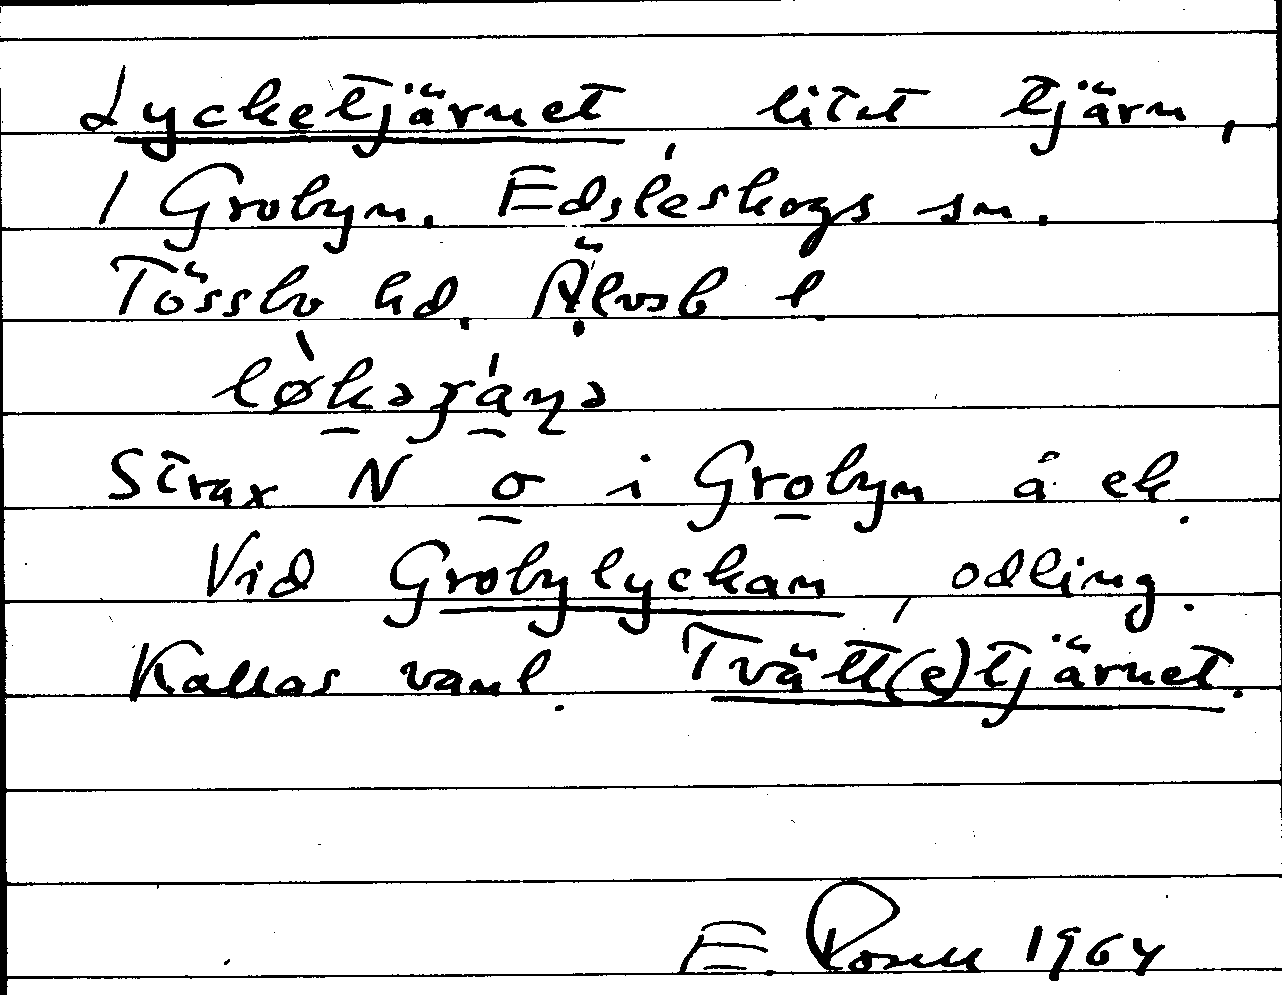 Lycketjärnet litet tjärn,
1 Grobyn. Edsleskogs sn.
Tössbo hd. Älvsb l.
Strax N o i Grobyn å ek.
Vid Grobylyckan, odling.
Kallas vanl. Tvätt(e)tjärnet.
E. Rosell 1964